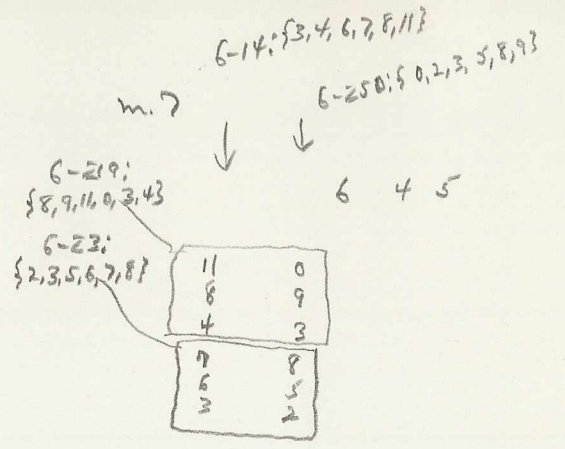 6-14: {3,4,6,7,8,11}
6-Z50: {0,2,3,5,8,9}
m. 7
6-Z19:
{8,9,11,0,3,4}
6 4 5
6-Z3:
{2,3,5,6,7,8}
11 0
8 9
4 3
7 8
6 5
3 2